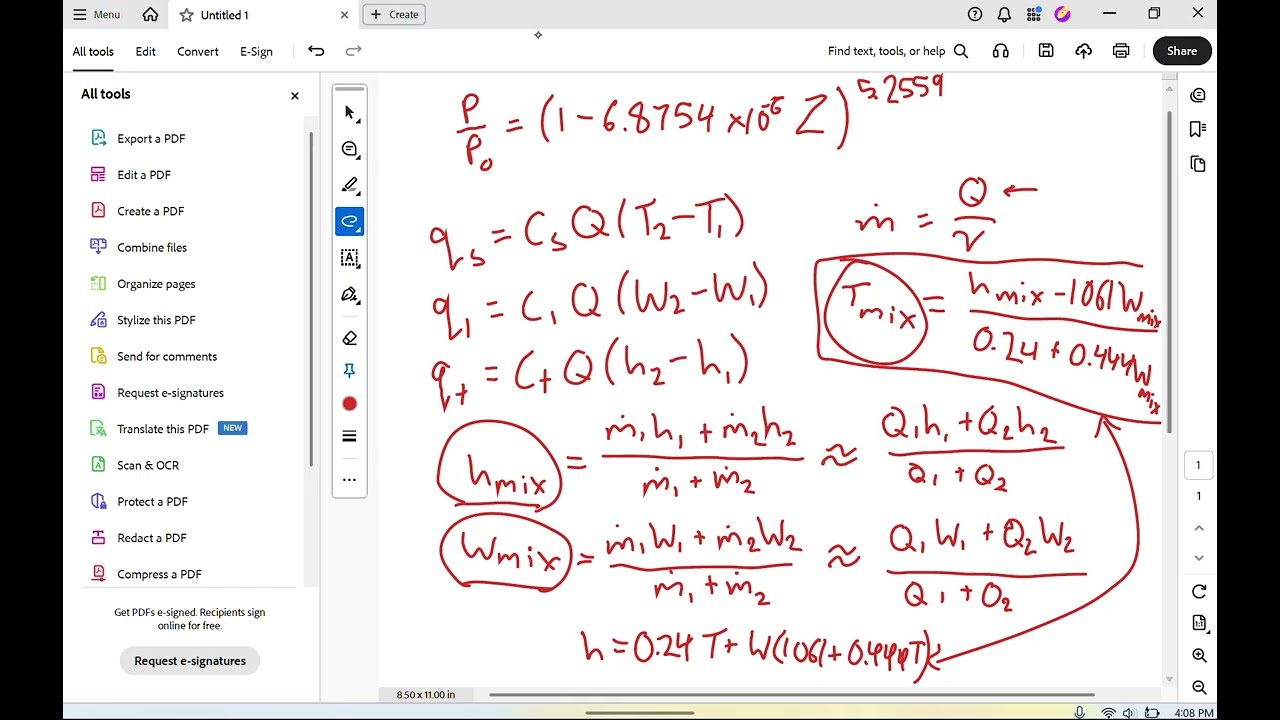 Menu
Untitled 1
Create
All tools Edit Convert E-Sign
Find text, tools, or help
Share
All tools
Export a PDF
Edit a PDF
Create a PDF
Combine files
Organize pages
Stylize this PDF
Send for comments
Request e-signatures
Translate this PDF NEW
Scan & OCR
Protect a PDF
Redact a PDF
Compress a PDF
Get PDFs e-signed. Recipients sign
online for free.
Request e-signatures
P/P₀ = (1 - 6.8754 × 10⁻⁶ Z)^5.2559
ṁ = Q/v ←
q_s = C_s Q (T₂ - T₁)
q_l = C_l Q (W₂ - W₁)
q_t = C_t Q (h₂ - h₁)
T_mix = (h_mix - 1061 W_mix)/(0.24 + 0.444 W_mix)
h_mix = (ṁ₁h₁ + ṁ₂h₂)/(ṁ₁ + ṁ₂) ≈ (Q₁h₁ + Q₂h₂)/(Q₁ + Q₂)
W_mix = (ṁ₁W₁ + ṁ₂W₂)/(ṁ₁ + ṁ₂) ≈ (Q₁W₁ + Q₂W₂)/(Q₁ + Q₂)
h = 0.24 T + W(1061 + 0.444T)
1
1
8.50 x 11.00 in
4:08 PM